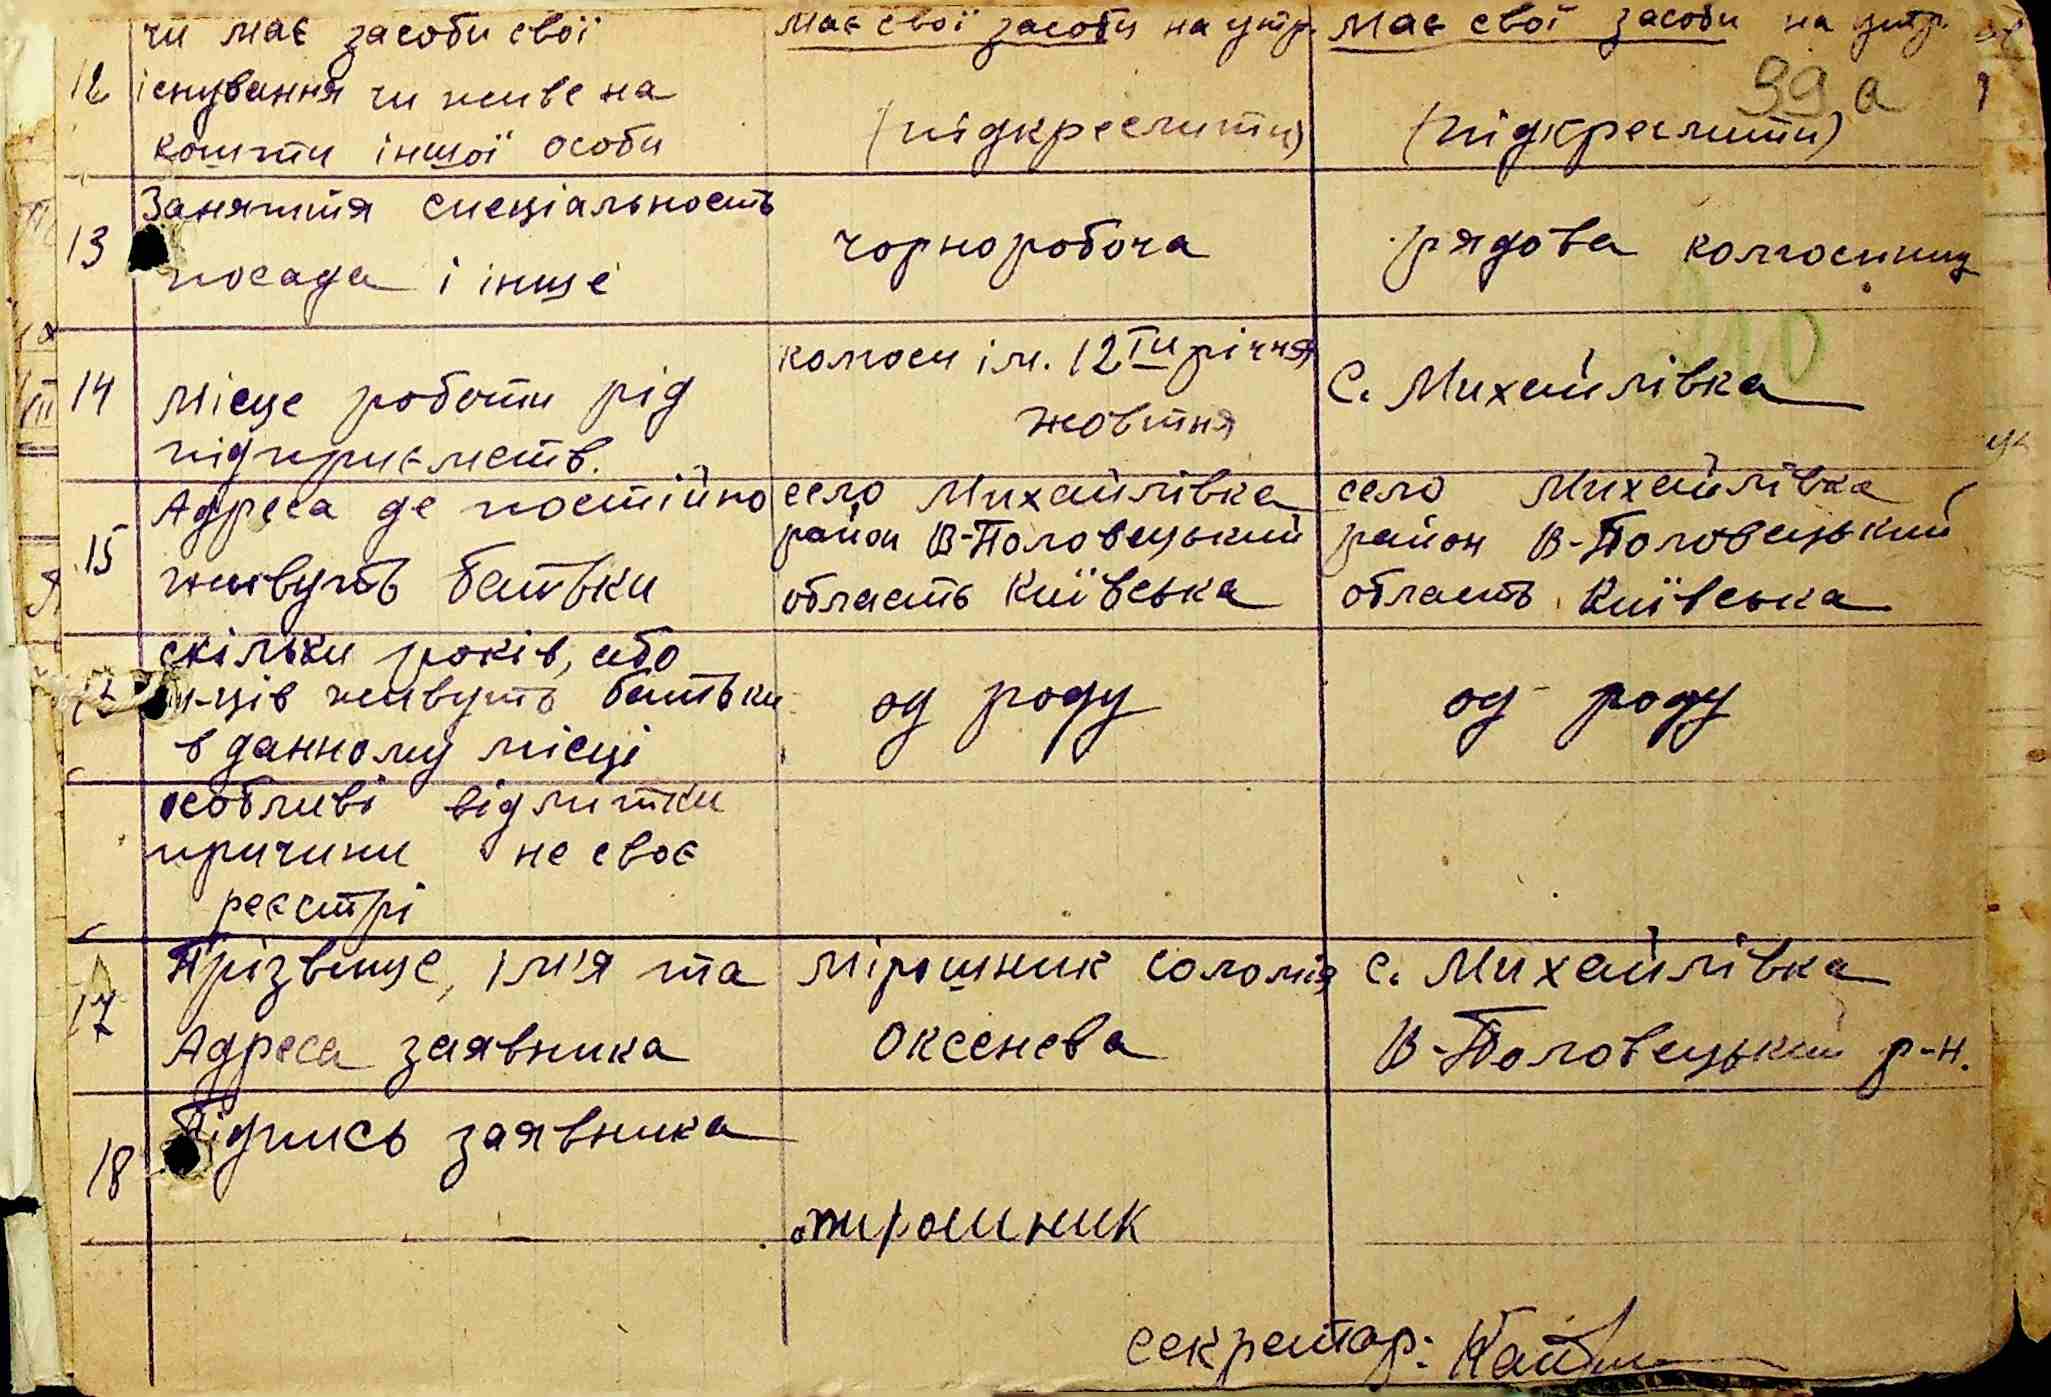 чи має засоби свої
має свої засоби на утр.
має свої засоби на утр.
99 а
12 існування чи живе на
кошти іншої особи
(підкреслити)
(підкреслити)
13 Заняття специіальность
посада і інше
чорноробоча
рядова колгоспниц
14 Місце роботи рід
підприємств.
колгосп ім. 12ТИ річчя
жовтня
С. Михайлівка
15 Адреса де постійно
живуть батьки
село Михайлівка
район В-Половецький
область Київська
село Михайлівка
район В-Половецький
область Київська
скільки років, або
м-ців живуть батьки
в данному місці
од роду
од роду
особливі відмитки
причини не своє
реєстрі
17 Прізвище, ім'я та
Адреса заявника
Мірошник Соломія
Оксенева
с. Михайлівка
В-Половецький р-н.
18 Підпись заявника
мірошник
секретар: